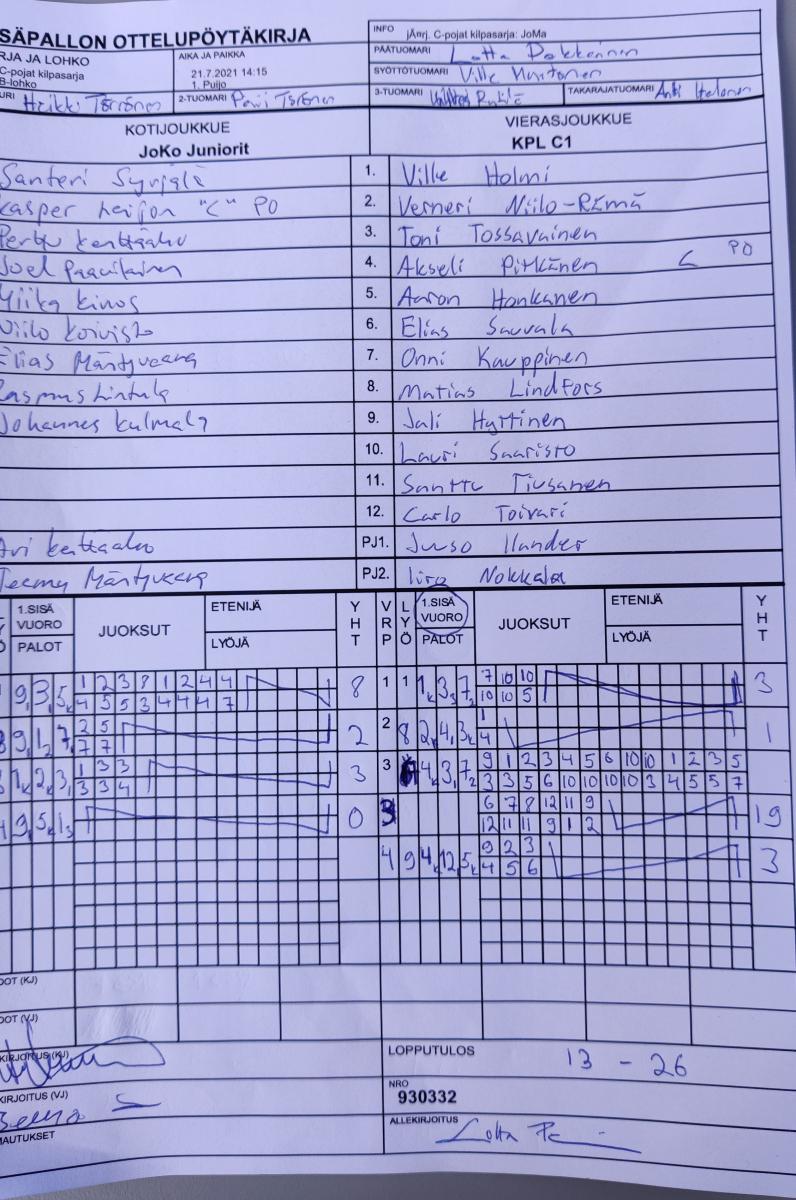 SÄPALLON OTTELUPÖYTÄKIRJA
INFO jÄnrj. C-pojat kilpasarja: JoMa
RJA JA LOHKO
C-pojat kilpasarja
B-lohko
AIKA JA PAIKKA
21.7.2021 14:15
1. Puijo
PÄÄTUOMARI Lotta
SYÖTTÖTUOMARI Ville
URI Heikki Törrönen
2-TUOMARI Törönen
3-TUOMARI
TAKARAJATUOMARI
KOTIJOUKKUE
JoKo Juniorit
VIERASJOUKKUE
KPL C1
Santeri Syrjälä 1. Ville Holmi
Kasper "C" PO 2. Verneri Niilo-Rämä
Perttu Kenttäaho 3. Toni Tossavainen
Joel 4. Akseli Pitkänen C PO
Miika Kinos 5. Aaron Honkanen
Niilo Koivisto 6. Elias Sauvala
Elias Mäntyvaara 7. Onni Kauppinen
Rasmus Lintula 8. Matias Lindfors
Johannes Kulmala 9. Jali Hyttinen
10. Lauri Saaristo
11. Santtu Tiusanen
12. Carlo Toivari
Ari Kenttäaho PJ1. Juuso Ilander
Teemu Mäntyvaara PJ2. Iiro Nokkala
1.SISÄ VUORO PALOT JUOKSUT ETENIJÄ LYÖJÄ YHT VRP LYÖ 1.SISÄ VUORO PALOT JUOKSUT ETENIJÄ LYÖJÄ YHT
9 3 5 1 2 3 8 1 2 4 4 8 1 1 1 3 7 7 10 10 3
4 5 5 3 4 4 4 7 10 10 5
9 1 7 2 5 2 2 8 2 4 3 1 1
7 7 4
1 2 3 1 3 3 3 3 4 3 7 9 1 2 3 4 5 6 10 10 1 2 3 5
3 3 4 3 3 5 6 10 10 10 10 3 4 5 5 7
9 5 1 0 6 7 8 12 11 9 19
12 11 11 9 1 2
4 9 4 12 5 9 2 3 3
4 5 6
DOT (KJ)
DOT (VJ)
KIRJOITUS (KJ)
LOPPUTULOS 13 - 26
KIRJOITUS (VJ)
NRO
930332
MAUTUKSET
ALLEKIRJOITUS Lotta